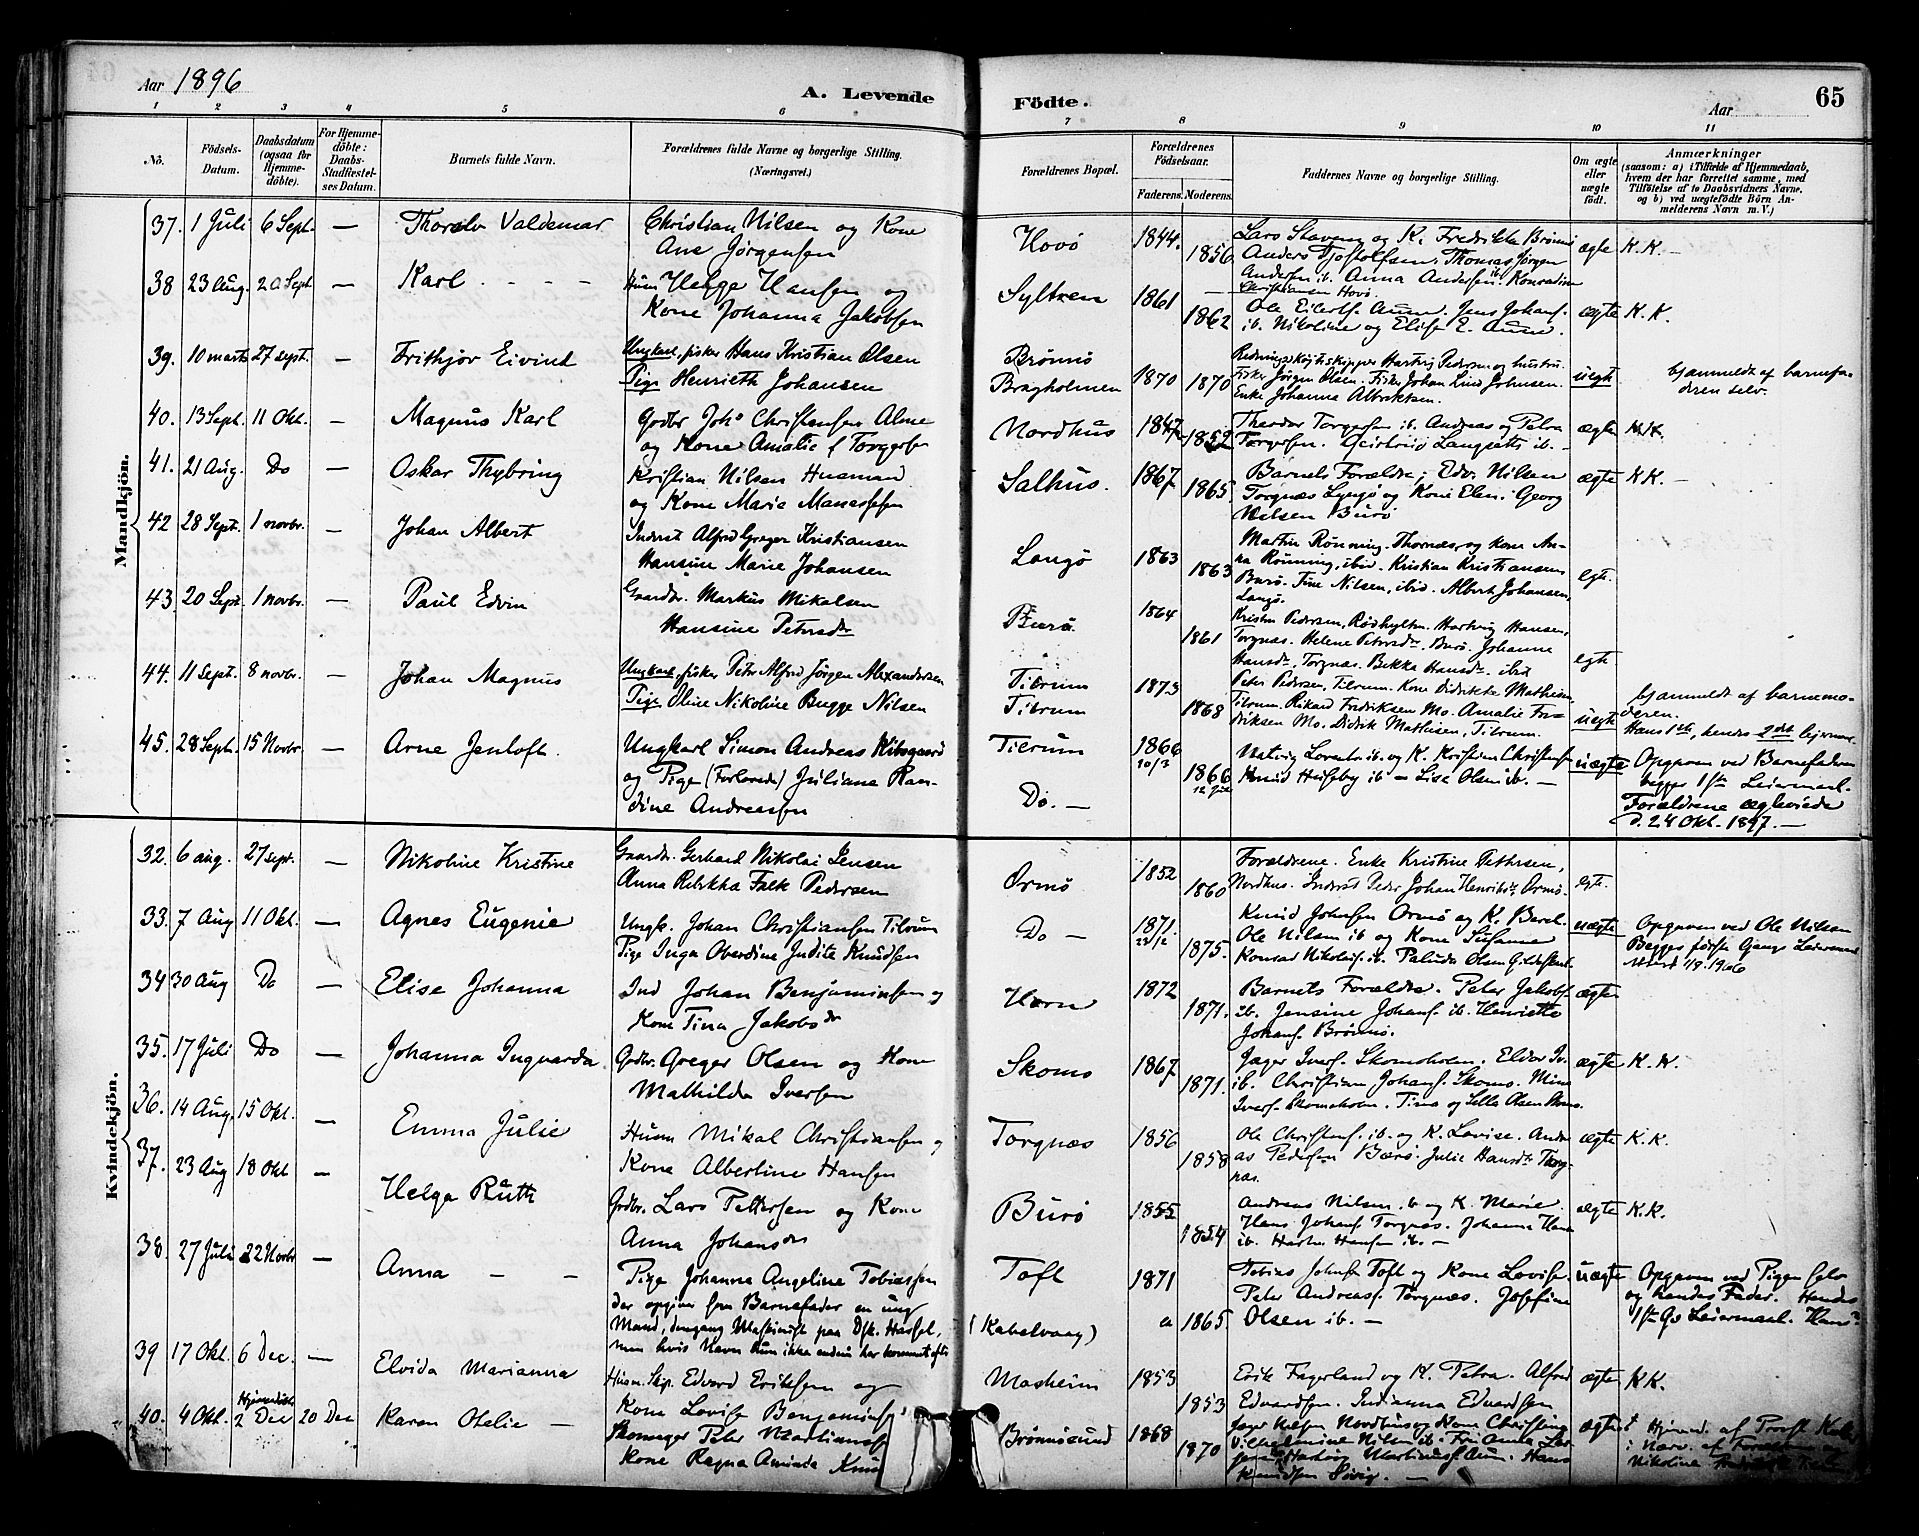 Aar 1896
A. Levende
Födte.
Aar
65
1 2 3 4 5 6 7 8 9 10 11
No.
Födsels-Datum.
Daabsdatum (ogsaa for Hjemmedöbte).
For Hjemmedöbte: Daabs-Stadfestelses Datum.
Barnets fulde Navn.
Forældrenes fulde Navne og borgerlige Stilling. (Næringsvei.)
Forældrenes Bopæl.
Forældrenes Födselsaar.
Faderens. Moderens.
Faddernes Navne og borgerlige Stilling.
Om ægte eller uægte födt.
Anmærkninger
(saasom: a) i Tilfælde af Hjemmedaab,
hvem der har forrettet samme, med
Tilföielse af to Daabsvidners Navne,
og b) ved uegtefödte Börn An-
melderens Navn m. V.)
Mandkjön.
37. 1 Juli 6 Sept. — Thorolv Valdemar Christian Nilsen og Kone
Ane Jørgensen
Hovö 1844. 1856
Lars Staven og K. Fredrikke Brønnö
Anders Tjostolfsen, Thomas Jørgen
Andersen ib. Anna Andersen ib. Konradine
Christiansen Hovö.
ægte K. K. —
38 23 Aug. 20 Sept — Karl Husm Helge Hansen og
Kone Johanna Jakobsen
Syltren 1861 1862
Ole Eilerts. Aune. Jens Johans.
ib. Nikoline og Elise E. Aune.
ægte K. K.
39. 10 marts 27 sept. — Frithjov Eivind Ungkarl, fisker Hans Kristian Olsen
Pige Henrieth Johansen
Brönnö
Bragholmen 1870 1870
Redningsskøitskipper Hartvig Pedersen og hustru.
Fisker Jørgen Olsen. Fisker Johan Lind Johnsen.
Enke Johanna Albriktsen.
uegte
bjanmeldt af barnefa-
deren selv.
40. 13 Sept. 11 Okt. — Magnus Karl Gdbr Johs Christensen Alme
og Kone Amalie f Torgers
Nordhus 1847 1852
Theodor Torgersen ib. Andreas og Petra
Torgersen. Langseth ib.
ægte K.K.
41. 21 Aug. Do — Oskar Thybring Kristian Nilsen Husmand
og Kone Marie Manassesen
Salhus. 1867 1865
Barnets Forældre; Edv. Nilsen
Torgnæs Langö og Kone Elen. Georg
Nilsen Burö
ægte K.K. —
42 28 Sept. 1 novbr. — Johan Albert Inderst Alfred Greger Kristiansen
Hansine Marie Johansen
Langö 1863 1863
Martin Rönning. Thornæs, og kone An-
na Rönning, ibid. Kristian Kristiansen
Burö. Tine Nilsen, ibid. Albert Johansen,
Langö.
egte.
43. 20 Sept. 1 novbr. — Paul Edvin Gaardbr. Markus Mikalsen
Hansine Petersdtr
Burö. 1864 1861
Kristen Pedersen, Rödhyltm. Hartvig Hansen,
Torgnæs. Helene Petersdtr. Burö. Johanne
Hansdtr, Torgnæs. Bekka Hansdtr. ibid
egte
44. 11 Sept. 8 novbr. — Johan Magnus Ungkarl, fisker Peter Alfred Jörgen Alexandersen
Pige Oline Nikoline Bugge Nilsen
Tilrum
Tilrum 1873 1868
Peter Pedersen, Tilrum. Kone Didrikke Mathisen,
Tilrum. Rikard Fredriksen Mo. Amalie Fre-
driksen Mo. Didrik Mathisen, Tilrum.
uegte
bjanmeldt af barnemo-
deren.
Hans 1ste, hendes 2det lejermaal.
45. 28 Sept. 15 Novbr. — Arne Jenloft. Ungkarl Simon Andreas Kibsgaard
og Pige (Forlovede) Juliane Ran-
dine Andreassen
Tilrum
Do. — 1866 10/3 1866 12 Juli
Lorents ib. og K. Kristine Christophs
Knud Heiseby ib — Lise Olsen ib. —
uægte
Opgaven ved Barnefaderen
begges 1ste Leiermaal.
Forældrene ægteviede
d. 24 Okt. 1897. —
Kvindekjön.
32. 6 aug. 27 sept. — Nikoline Kristine Gaardbr. Gerhard Nikolai Jensen
Anna Rebekka Falk Pedersen
Ormö 1852 1860
Forældrene. Enke Kristine Pettersen,
Nordhus. Inderst Peder Johan Henriksen Ormö.
egte.
33. 7 Aug 11 Okt. — Agnes Eugenie Ungk. Johan Christiansen Tilrum
Pige Inga Oberdine Judite Knudsen
Do — 1871. 23/12 1875.
Knud Johnsen Ormö og K. Berel.
Ole Nilsen ib og Kone Susanne
Konrad Nikolais. ib. Paluda Olsen Gildeskaal.
uægte
Opgaven ved Ole Nilsen
Begges første Gangs Leiermaal
34 30 Aug Do — Elise Johanna Ind Johan Benjaminsen og
Kone Tina Jakobsdr
Horn 1872 1871.
Barnets Forældre. Peter Jakobs.
ib. Jensine Johans. ib. Henriette
Johans. Brönnö.
ægte
35. 17 Juli Do — Johanna Ingvarda Grdbr. Greger Olsen og Kone
Mathilda Iversen
Skomo 1867 1871.
Jager Ivers. Skomoholm. Eldor Iv.
ib. Christian Johans. Skomo. Mina
Ivers. Skomoholm. Tina og Sella Olsen Skomo.
ægte K. K.
36. 14 Aug. 15 Okt. — Emma Julie Husm Mikal Christiansen og
Kone Albertine Hansen
Torgnæs 1856 1858
Ole Christens. ib. og K. Lovise. Andre
as Pedersen Bærö. Julie Hansdtr Torg-
næs.
ægte K. K.
37. 23 Aug 18 Okt — Helga Ruth Grdbr. Lars Pettersen og Kone
Anna Johansdtr
Burö 1855 1854
Andreas Nilsen ib og K. Marie.
Hans Johans. Torgnæs. Johanna Hans
ib. Hartv. Hansen ib. —
ægte K.K.
38. 27 Juli 22 Novbr — Anna — — Pige Johanna Angeline Tobiassen
der opgiver som Barnefader en ung
Mand, dengang Maskinist paa Dsk. Hassel,
men hvis Navn hun ikke endnu har kommet efter
Toft
(Kabelvaag) 1871 a 1865
Tobias Johnsen Toft og Kone Lovise.
Peter Andreass. Torgnæs. Josefine
Olsen ib. —
uægte
Opgaven ved Pigen selv
og hendes Fader. Hendes
1ste Gs Leiermaal. Hans?
39 17 Okt. 6 Dec. — Elvida Marianna Husm. Skp. Edvard Eriksen og
Kone Lovise Benjamins
Masheim 1853 1853
Erik Fagerland og K. Petra. Alfred
Edvardsen. Indianna Edvardsen
ægte K.K.
40. 4 Okt. Hjemmedöbt 2 Dec 20 Dec Karen Otelie — Skomager Peter Martinus
Kone Ragna Aminda Knud
Brönnösund 1868 1870
Jager Nilsen Nordhus og Kone Christine
Vilhelmine Nilsen ib. Frk Anna Lar
Martinus. Aune. Hans
Knudsen Sövig. —
ægte
Hjemmed. af Provst
i Nærv. af Forældrene og
Nikoline